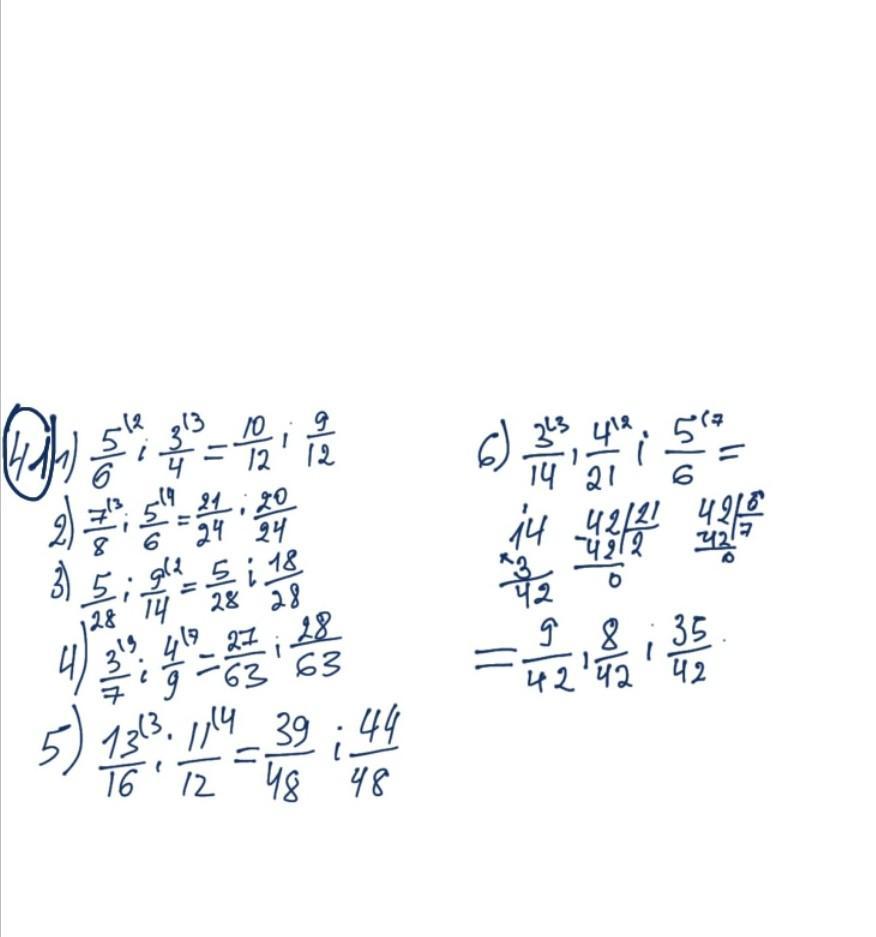 41 1) 5/6 (2 і 3/4 (3 = 10/12 і 9/12
2) 7/8 (3 і 5/6 (4 = 21/24 і 20/24
3) 5/28 і 9/14 (2 = 5/28 і 18/28
4) 3/7 (9 і 4/9 (7 = 27/63 і 28/63
5) 13/16 (3 і 11/12 (4 = 39/48 і 44/48
6) 3/14 (3 , 4/21 (2 і 5/6 (7 =
14 × 3 = 42
42 | 21
-42 | 2
0
42 | 6
42 | 7
0
= 9/42 , 8/42 і 35/42